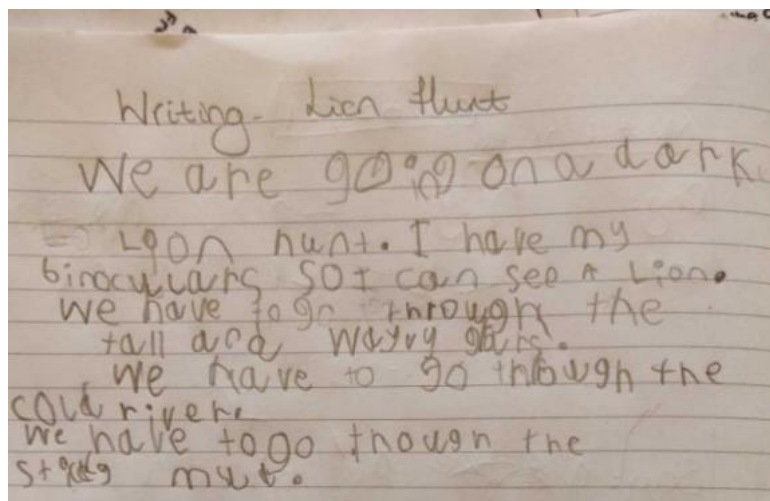 Writing- Lion Hunt
We are going on a dark
Lgon hunt. I have my
binocylars SO I can see A Lion.
We have to go through the
tall and wayvy
We have to go through the
cold river.
We have to go though the
mut.